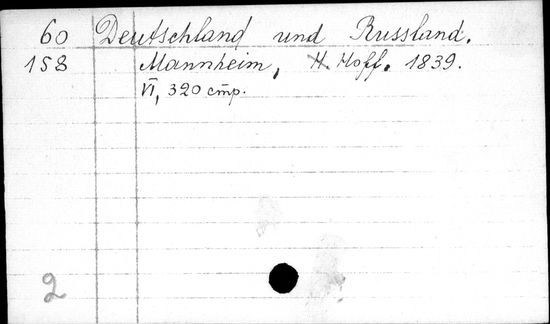 60 Deutschland und Russland.
158 Mannheim, H. Hoff. 1839.
VI, 320 стр.
2